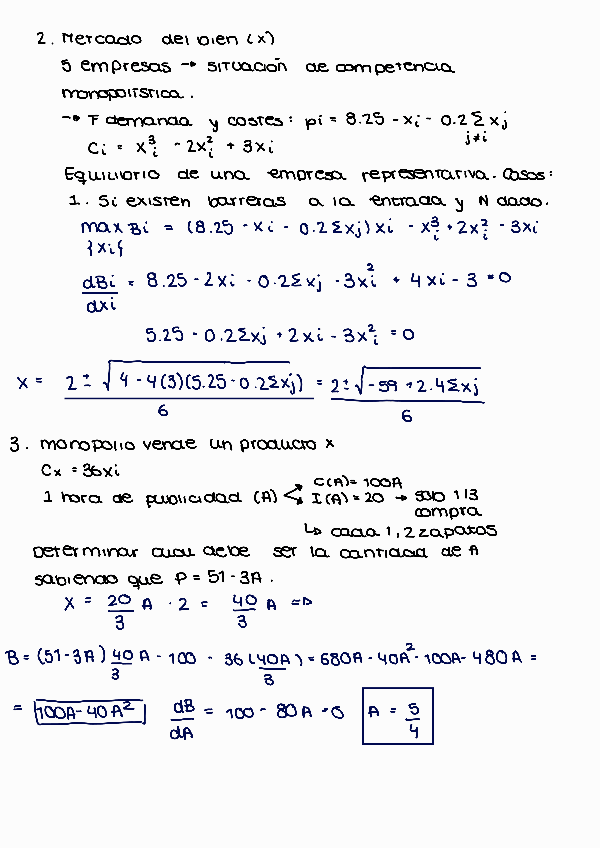 2. Mercado del bien (x)
5 empresas → situación de competencia
monopolística.
→ F demanda y costes: pi = 8.25 - xi - 0.2 Σ xj
j≠i
Ci = xi³ - 2xi² + 3xi
Equilibrio de una empresa representativa. Casos:
1. Si existen barreras a la entrada y N dado.
max Bi = (8.25 - xi - 0.2Σxj)xi - xi³ + 2xi² - 3xi
{xi}
dBi/dxi = 8.25 - 2xi - 0.2Σxj - 3xi² + 4xi - 3 = 0
5.25 - 0.2Σxj + 2xi - 3xi² = 0
x = (2 ± √(4 - 4(3)(5.25 - 0.2Σxj)))/6 = (2 ± √(-59 + 2.4Σxj))/6
3. monopolio vende un producto x
Cx = 36xi
1 hora de publicidad (A) < C(A) = 100A
I(A) = 20 → solo 1/3
compra
↳ cada 1, 2 zapatos
Determinar cual debe ser la cantidad de A
sabiendo que P = 51 - 3A.
x = 20/3 A · 2 = 40/3 A ⇒
B = (51 - 3A) 40/3 A - 100 - 36 (40A/3) = 680A - 40A² - 100A - 480A =
= 100A - 40A² dB/dA = 100 - 80A = 0 A = 5/4